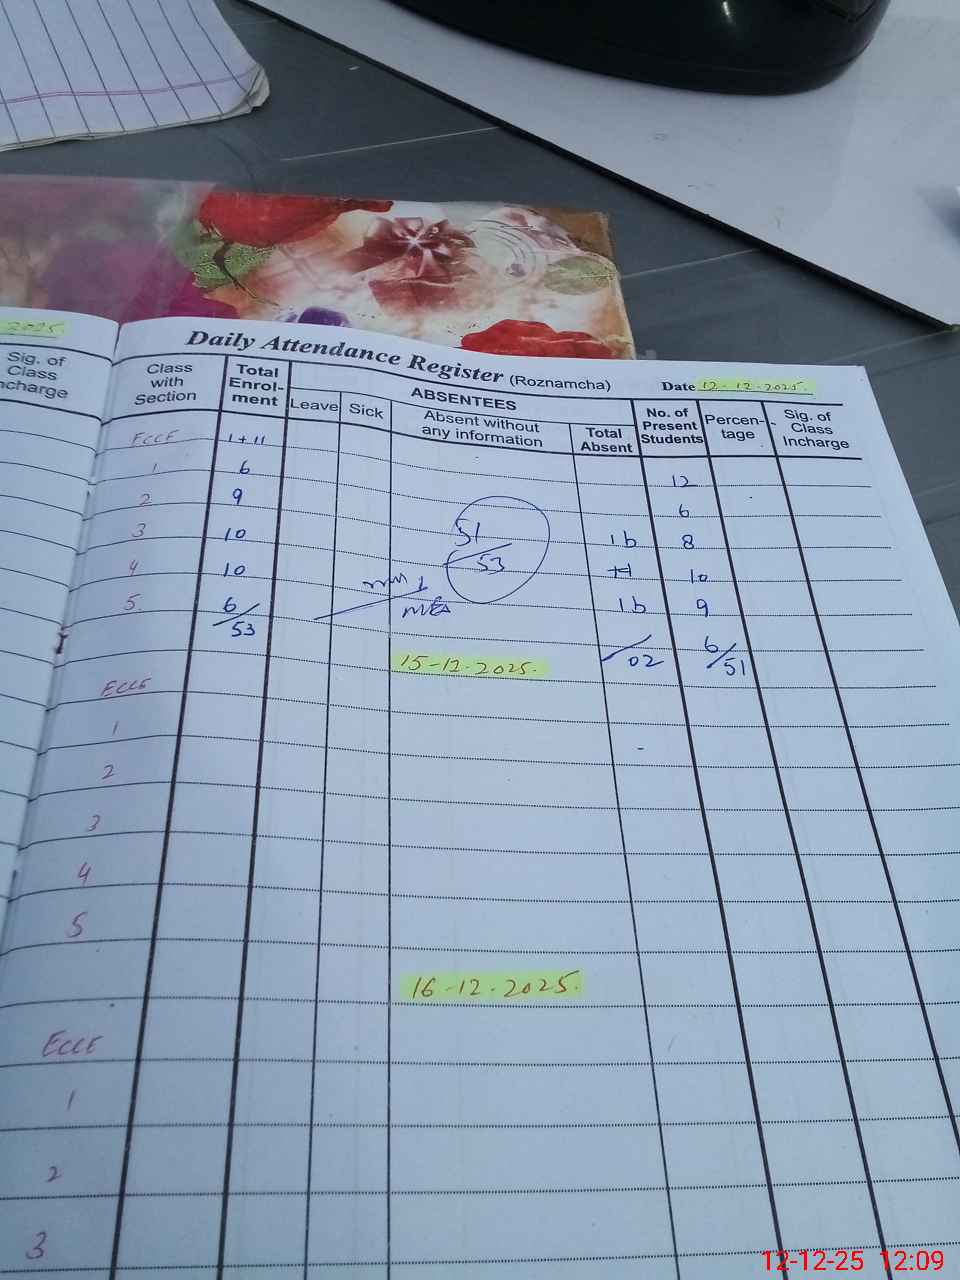 2025
Sig. of
Class
ncharge
Daily Attendance Register (Roznamcha) Date 12-12-2025.
Class with Section Total Enrol-ment ABSENTEES No. of Present Students Percen-tage Sig. of Class Incharge
Leave Sick Absent without any information Total Absent
ECCE 1+11 12
1 6 6
2 9 1b 8
3 10 51/53 10
4 10 1b 9
5. 6/53 /02 6/51
15-12-2025.
ECCE
1
2
3
4
5
16-12-2025.
ECCE
1
2
3
12-12-25 12:09